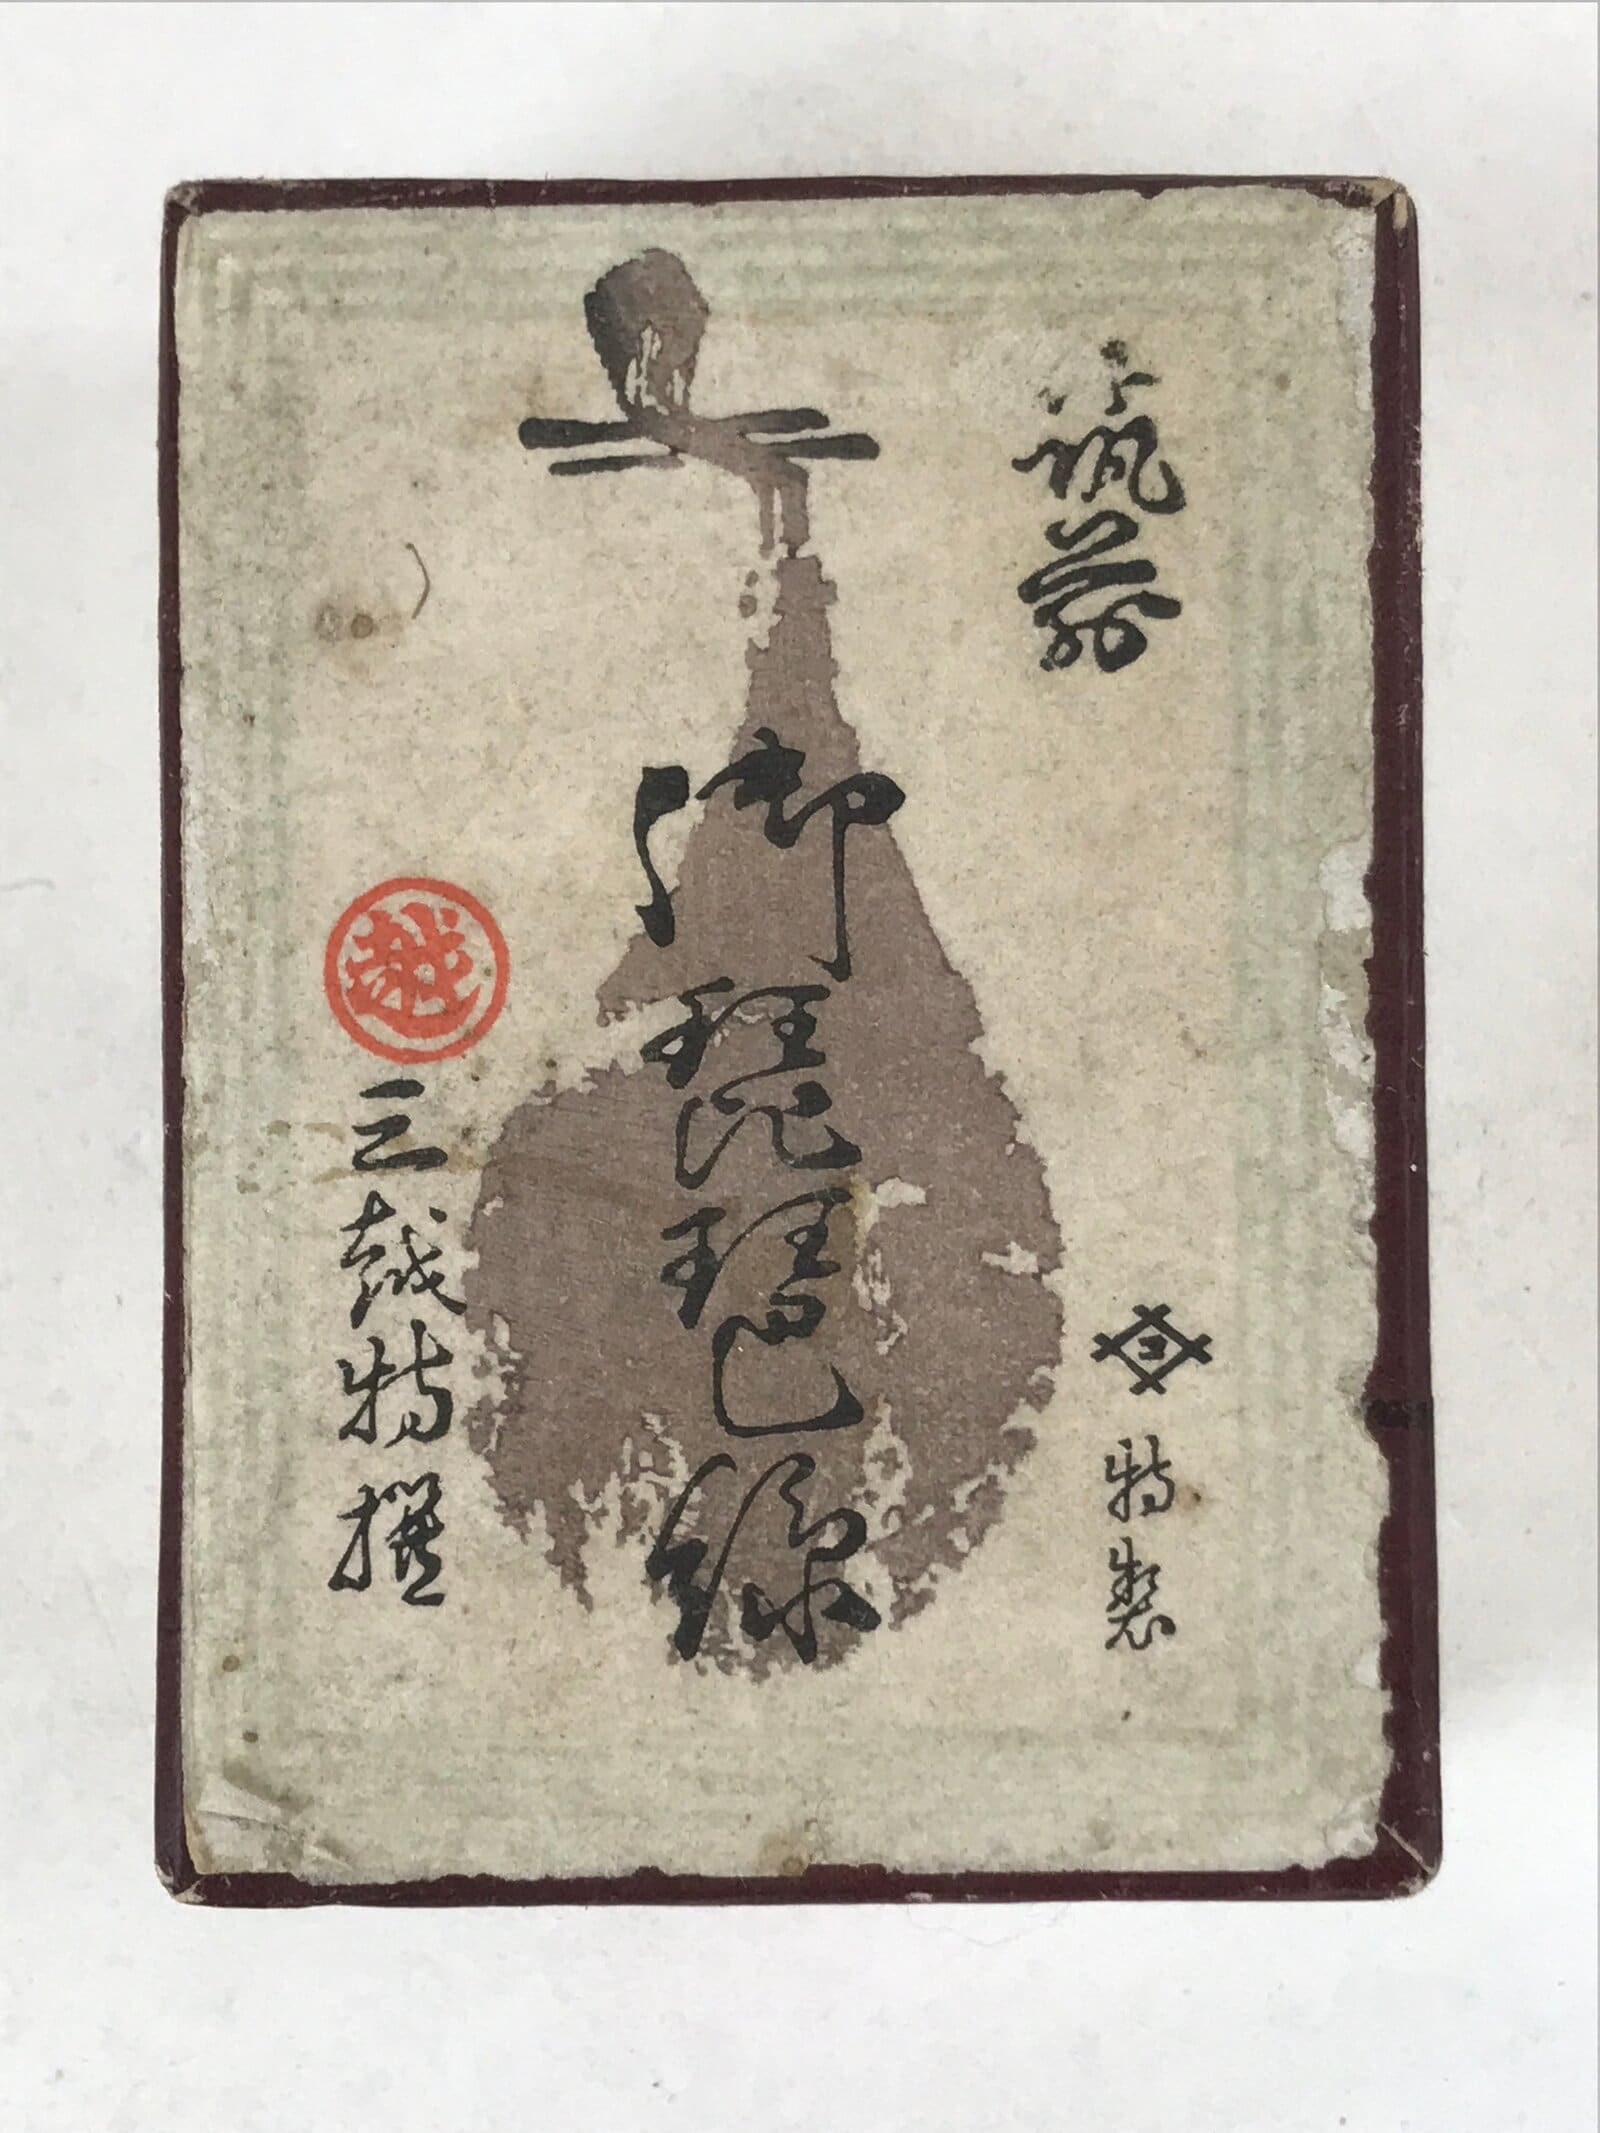 筑前
三
特製
御琵琶線
越
三越特撰